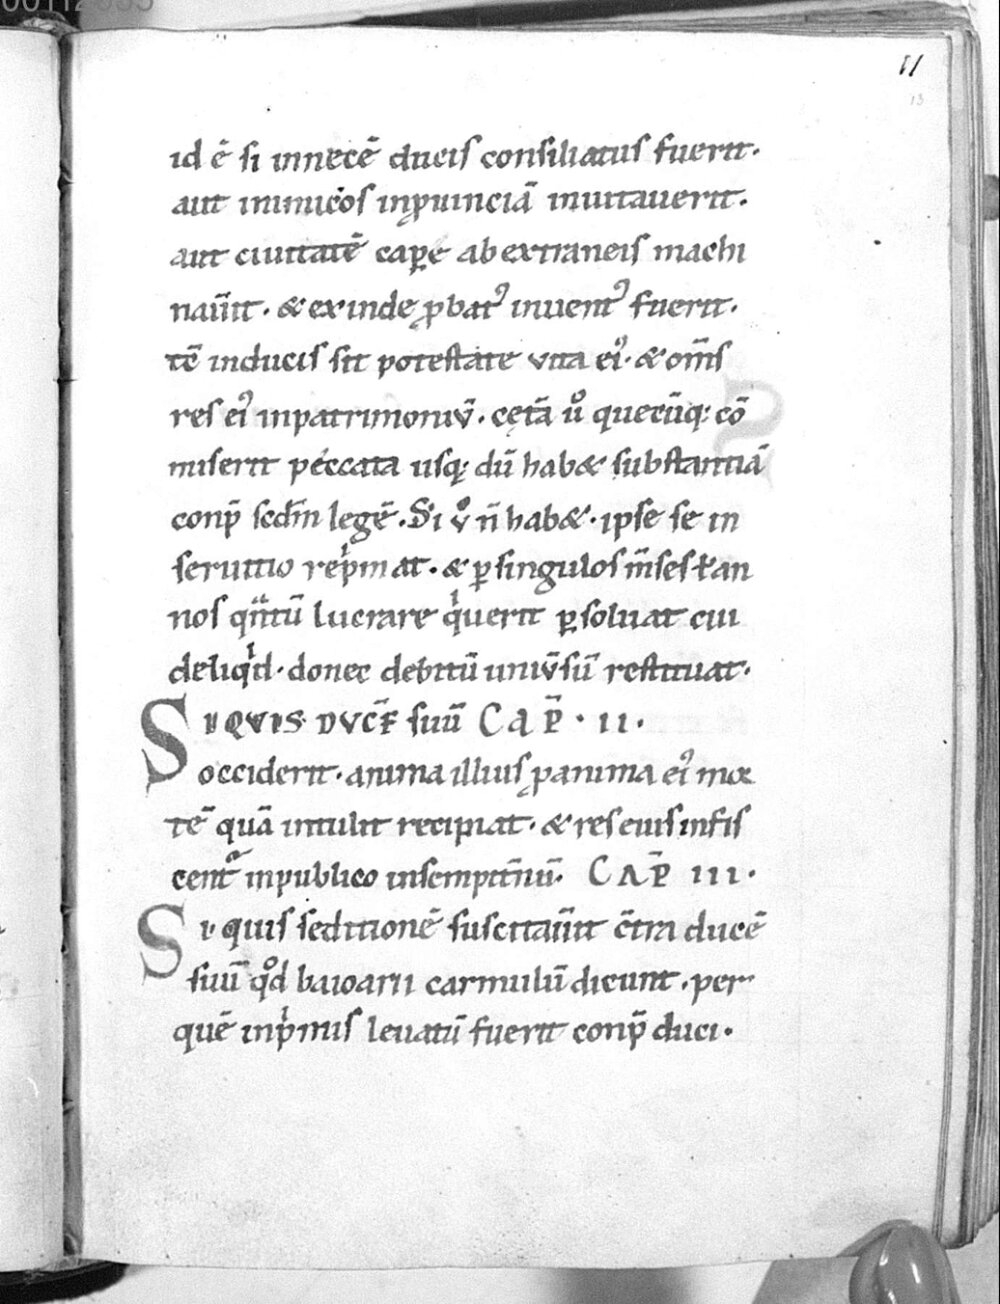 11
13
id ē si in necē ducis consiliatus fuerit·
aut inimicos in ꝓuinciā inuitauerit·
aut ciuitatē caꝑe ab extraneis machi
nauit̄· & exinde ꝓbatꝰ inuentꝰ fuerit·
tē in ducis sit potestate uita eiꝰ· & om̄s
res eiꝰ in patrimoniū· cętā ů quecūq; cō
miserit peccata usq; dū hab& substantiā
conp̄ scd̄m legē· Si v̊ n̄ hab&· ipse se in
seruitio rep̍mat· & ꝑ singulos m̄ses ł an
nos qn̄tū lucrare q̍uerit ꝑsoluat cui
deliq̍d· donec debitū uniu̅sū restituat·
SI QVIS DVCĒ suū CAP̄· II·
occiderit· anima illius ꝓ anima eiꝰ mor
tē quā intulit recipiat· & res euis infis
centᷓ in publico in sempit̄nū· CAP̄ III·
Si quis seditionē suscitau̅it c̄tra ducē
suū qd̊ baioarii carmulū dicunt· per
quē in p̍mis leuatū fuerit conp̄ duci·